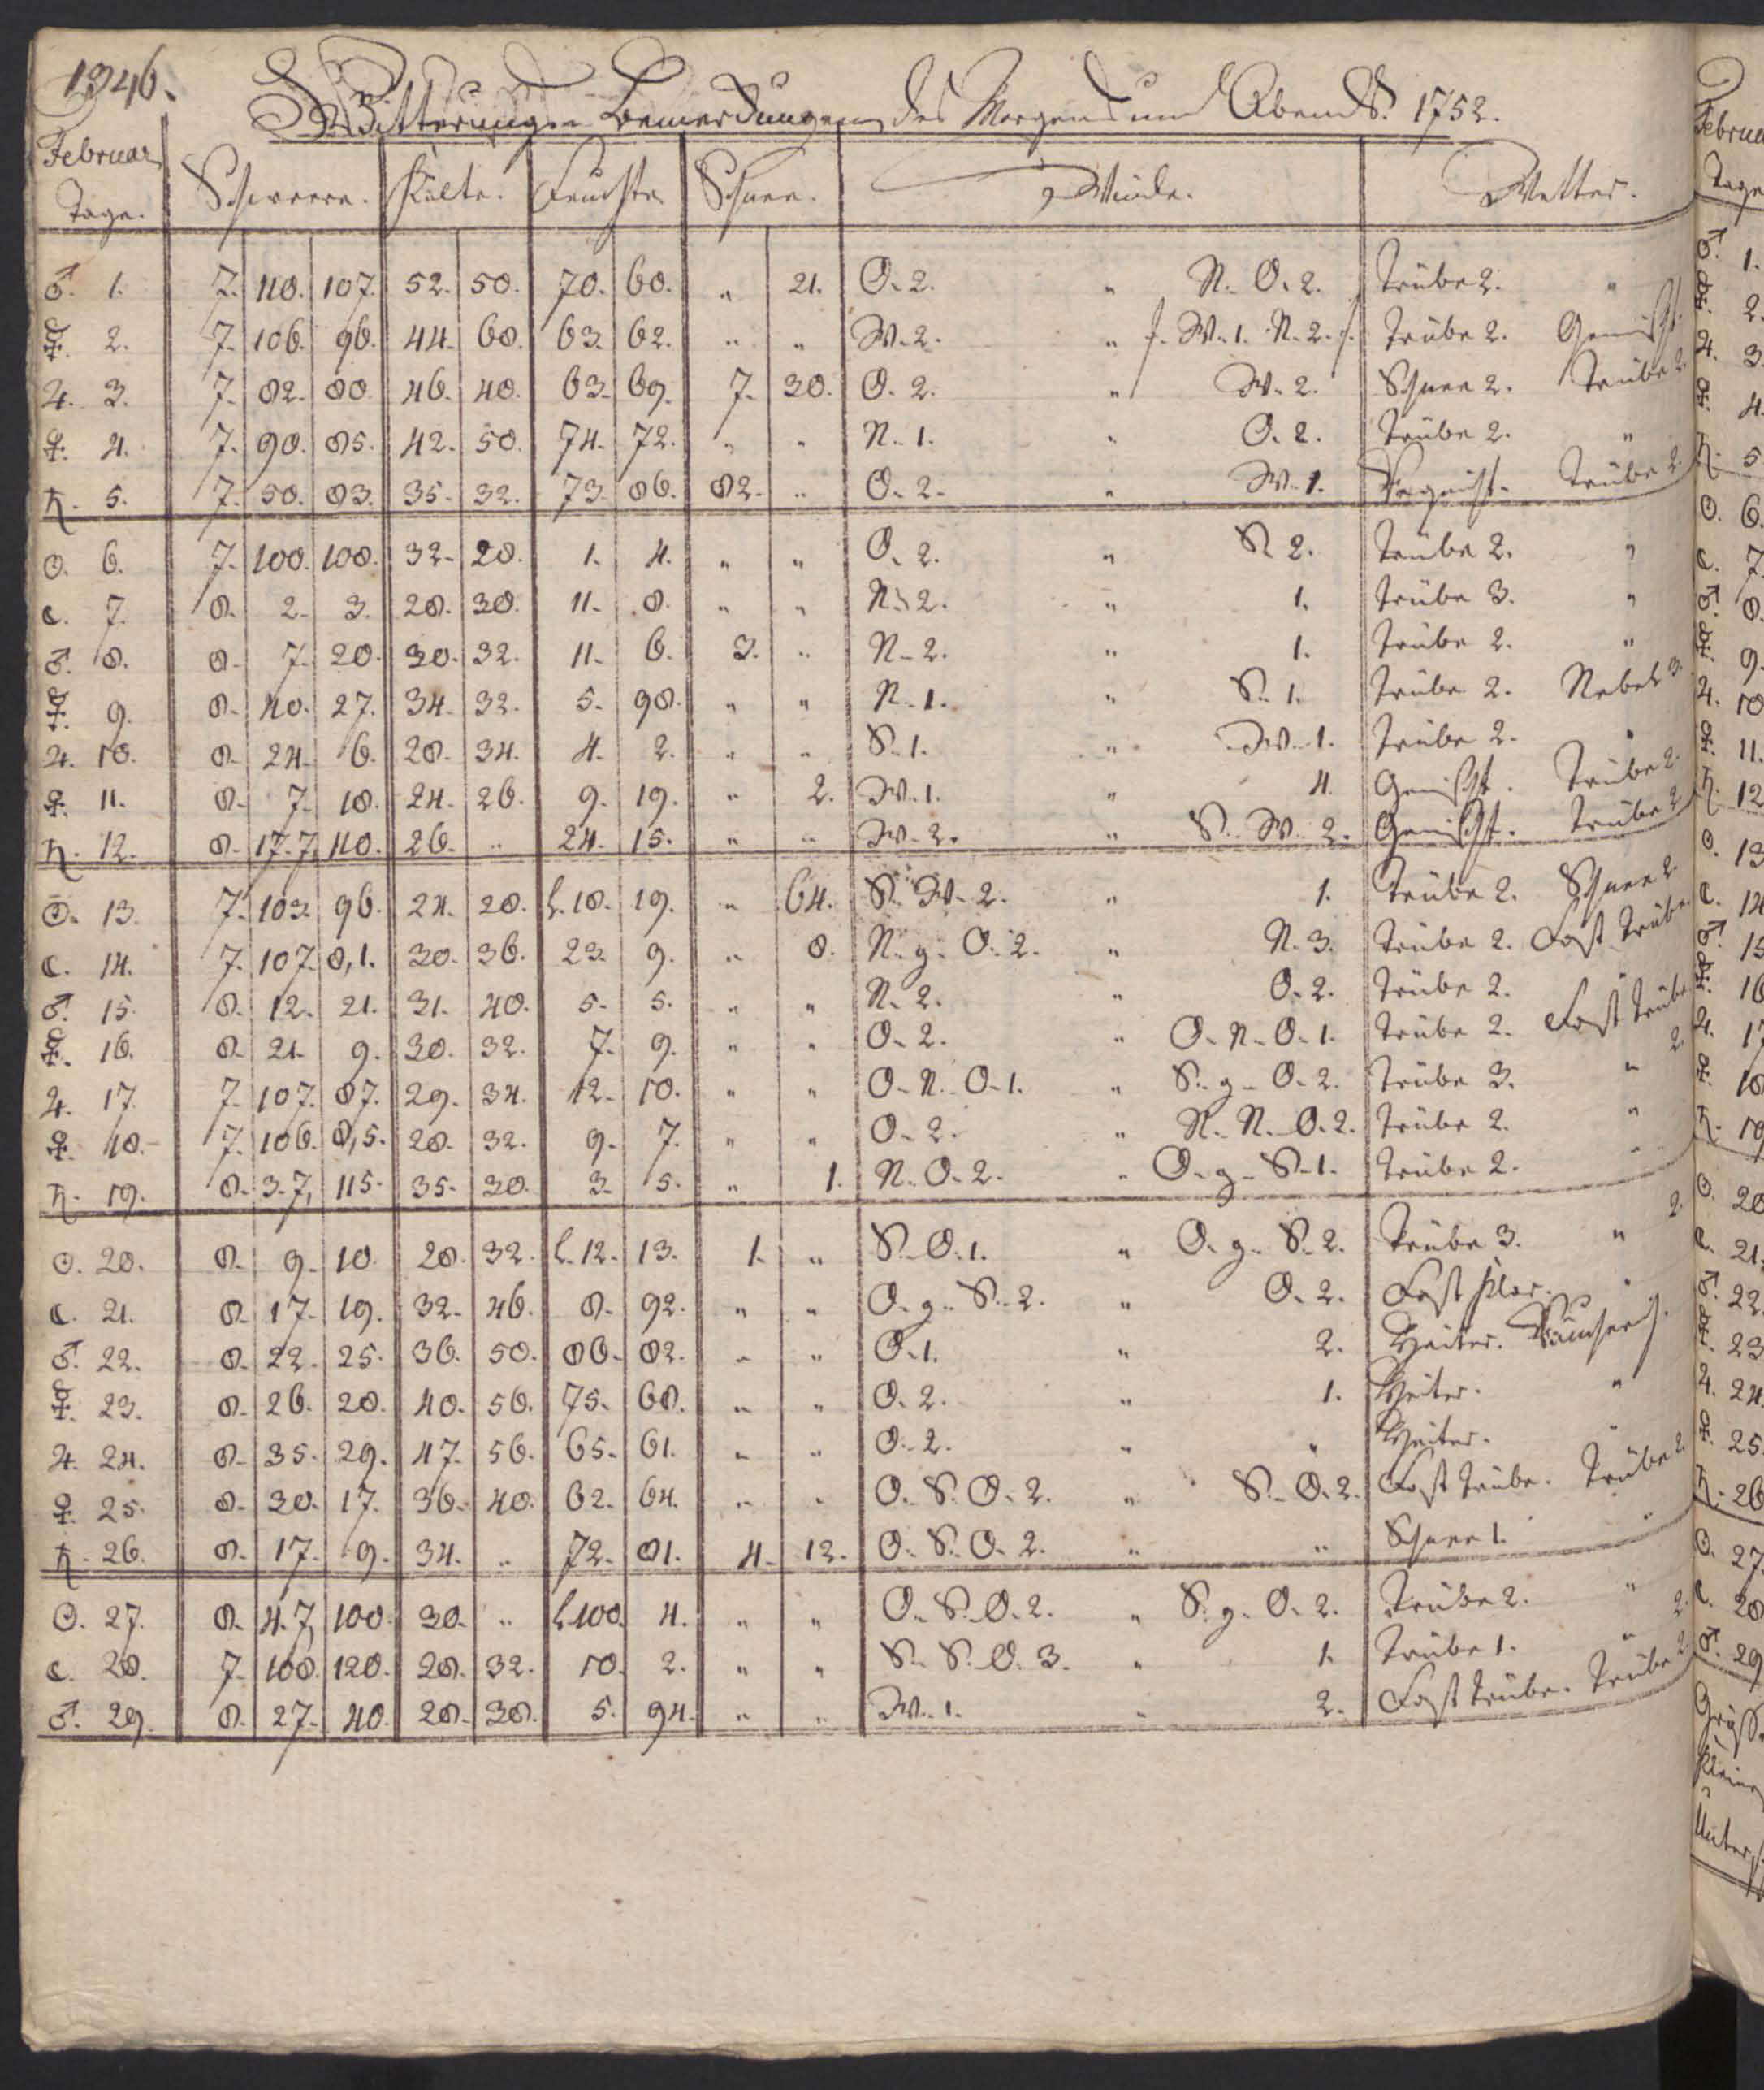 1346.
Witterungen Bemerckungen des Morgens und Abends. 1752.
Februar Tage. Schwere. Kälte. Feuchte Schnee. Winde. Wetter.
♂. 1. 7. 110. 107. 52. 50. 70. 60. " 21. O. 2. " N. O. 2. Trübe 2. "
☿. 2. 7. 106. 96. 44. 68. 63. 62. " " W. 2. " W. 1. N. 2. Trübe 2. Gemischt.
♃. 3. 7. 82. 80. 46. 48. 63. 69. 7. 30. O. 2. " W. 2. Schnee 2. Trübe 2.
♀. 4. 7. 90. 85. 42. 50. 74. 72. " " N. 1. " O. 2. Trübe 2. "
♄. 5. 7. 50. 83. 35. 32. 73. 86. 82. " O. 2. " W. 1. Trübe 2.
☉. 6. 7. 100. 108. 32. 28. 1. 4. " " O. 2. " N 2. Trübe 2. "
☾. 7. 8. 2. 3. 28. 30. 11. 8. " " N. 2. " 1. Trübe 3. "
♂. 8. 8. 7. 20. 30. 32. 11. 6. 3. " N. 2. " 1. Trübe 2. "
☿. 9. 8. 40. 27. 34. 32. 5. 98. " " N. 1. " S. 1. Trübe 2. Nebel 3.
♃. 10. 8. 24. 6. 28. 34. 4. 2. " " S. 1. " W. 1. Trübe 2. "
♀. 11. 8. 7. 18. 24. 26. 9. 19. " 2. W. 1. " 4. Gemischt. Trübe 2.
♄. 12. 8. 17. 7, 110. 26. " 24. 15. " " W. 2. " S. W. 2. Gemischt. Trübe 2.
☉. 13. 7. 103. 96. 24. 28. 18. 19. " 64. S. W. 2. " 1. Trübe 2. Schnee 2.
☾. 14. 7. 107. 8, 1. 30. 36. 23. 9. " 8. N. g. O. 2. " N. 3. Trübe 2. Fast Trübe
♂. 15. 8. 12. 21. 31. 40. 5. 5. " " N. 2. " O. 2. Trübe 2. "
☿. 16. 8. 21. 9. 30. 32. 7. 9. " " O. 2. " O. N. O. 1. Trübe 2. Fast Trübe
♃. 17. 7. 107. 87. 29. 34. 12. 10. " " O. N. O. 1. " S. g. O. 2. Trübe 3. " 2.
♀. 18. 7. 106. 8, 5. 28. 32. 9. 7. " " O. 2. " N. N. O. 2. Trübe 2. "
♄. 19. 8. 3. 7, 115. 35. 30. 3. 5. " 1. N. O. 2. " O. g. S. 1. Trübe 2. "
☉. 20. 8. 9. 10. 28. 32. 12. 13. 1. " S. O. 1. " O. g. S. 2. Trübe 3. " 2.
☾. 21. 8. 17. 19. 32. 46. 8. 92. " " O. g. S. 2. " O. 2. Fast klar. "
♂. 22. 8. 22. 25. 36. 50. 86. 82. " " O. 1. " 2. Heiter.
☿. 23. 8. 26. 28. 40. 56. 75. 68. " " O. 2. " 1. Heiter. "
♃. 24. 8. 35. 29. 47. 56. 65. 61. " " O. 2. " " Heiter. "
♀. 25. 8. 30. 17. 36. 40. 62. 64. " " O. S. O. 2. " S. O. 2. Fast Trübe. Trübe 2.
♄. 26. 8. 17. 9. 34. " 72. 81. 4. 12. O. S. O. 2. " " Schnee 1. "
☉. 27. 8. 4. 7, 100. 30. " 100. 4. " " O. S. O. 2. " S. g. O. 2. Trübe 2. "
☾. 28. 7. 108. 120. 28. 32. 10. 2. " " S. S. O. 3. " 1. Trübe 1. " 2.
♂. 29. 8. 27. 40. 28. 38. 5. 94. " " W. 1. " 2. Fast Trübe. Trübe 2.
Tage
♂. 1.
☿. 2.
♃. 3.
♀. 4.
♄. 5
☉. 6.
☾. 7.
♂. 8.
☿. 9.
♃. 10
♀. 11.
♄. 12
☉. 13
☾. 14
♂. 15
☿. 16
♃. 17
♀. 18
♄. 19
☉. 20
☾. 21.
♂. 22.
☿. 23
♃. 24.
♀. 25.
♄. 26
☉. 27.
☾. 28
♂. 29